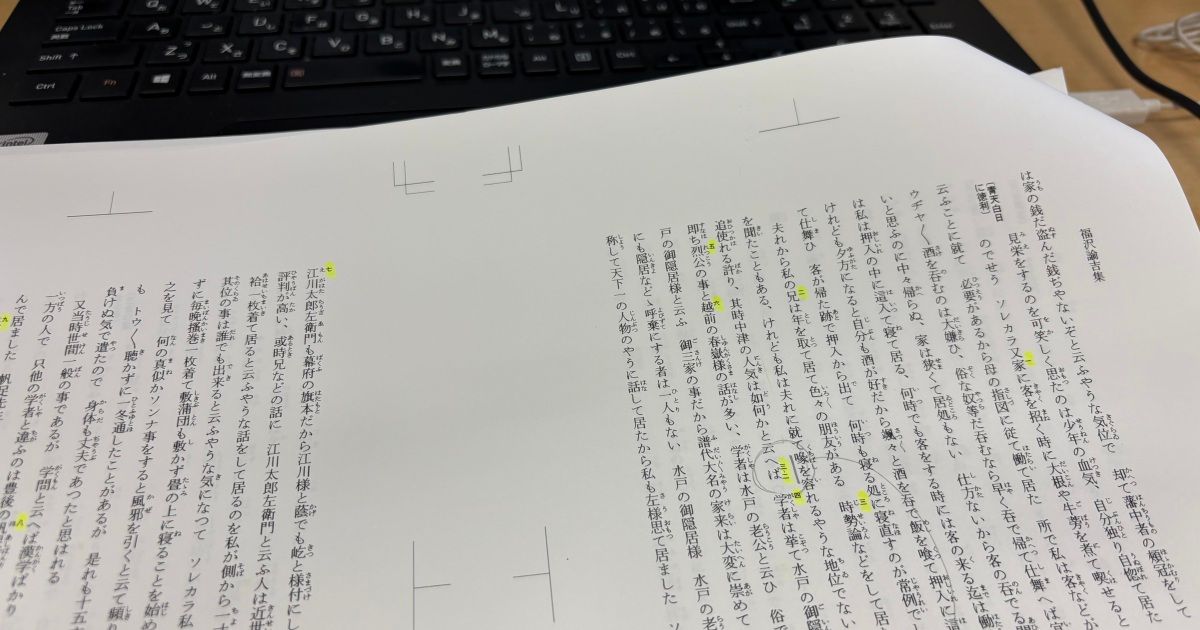 福沢諭吉集
は家の銭だ盗んだ銭ぢやないぞと云ふやうな気位で 却て藩中者の頬冠をして
見栄をするのを可笑しく思たのは少年の血気、自分独り自惚て居た
のでせう ソレカラ又家に客を招く時に大根や牛蒡を煮て喫せると
〔青天白日に徳利〕
云ふことに就て 必要があるから母の指図に従て働て居た 所で私は客などが
ウヂヤ〱酒を呑むのは大嫌ひ、俗な奴等だ呑むなら早く呑で帰て仕舞へば宜
いと思ふのに中々帰らぬ、家は狭くて居処もない 仕方ないから客の呑でる
は私は押入の中に這入て寝て居る、何時でも客をする時には客の来る迄は働
けれども夕方になると自分も酒が好だから颯々と酒を呑で飯を喰て押入に這
て仕舞ひ 客が帰た跡で押入から出て 何時も寝る処に寝直すのが常例で
夫れから私の兄は年を取て居て色々の朋友がある 時勢論などをして居
を聞たこともある、けれども私は夫れに就て喙を容れるやうな地位でない
追使れる許り、其時中津の人気は如何かと云へば 学者は挙て水戸の御隠
即ち烈公の事と越前の春嶽様の話が多い、学者は水戸の老公と云ひ 俗で
戸の御隠居様と云ふ 御三家の事だから譜代大名の家来は大変に崇めて
にも隠居などゝ呼棄にする者は一人もない 水戸の御隠居様 水戸の老
称して天下一の人物のやうに話して居たから私も左様思て居ました ソ
江川太郎左衛門も幕府の旗本だから江川様と蔭でも屹と様付にし
評判が高い、或時兄などの話に 江川太郎左衛門と云ふ人は近世
袷一枚着て居ると云ふやうな話をして居るのを私が側から一寸
其位の事は誰でも出来ると云ふやうな気になつて ソレカラ私
ずに毎晩掻巻一枚着て敷蒲団も敷かず畳の上に寝ることを始め
之を見て 何の真似かソンナ事をすると風邪を引くと云て頻り
も トウ〱聴かずに一冬通したことがあるが 是れも十五
負けぬ気で遣たので 身体も丈夫であつたと思はれる
又当時世間一般の事であるが 学問と云へば漢学ばかり
一方の人で 只他の学者と違ふのは豊後の帆
んで居ました 帆足先
一
二
三
三-二
四
五
六
七
八
九
Caps Lock
英数
Shift
Ctrl
Fn
Alt
無変換
Q
W
A
S
D
F
G
H
J
Z
X
C
V
B
N
M
intel